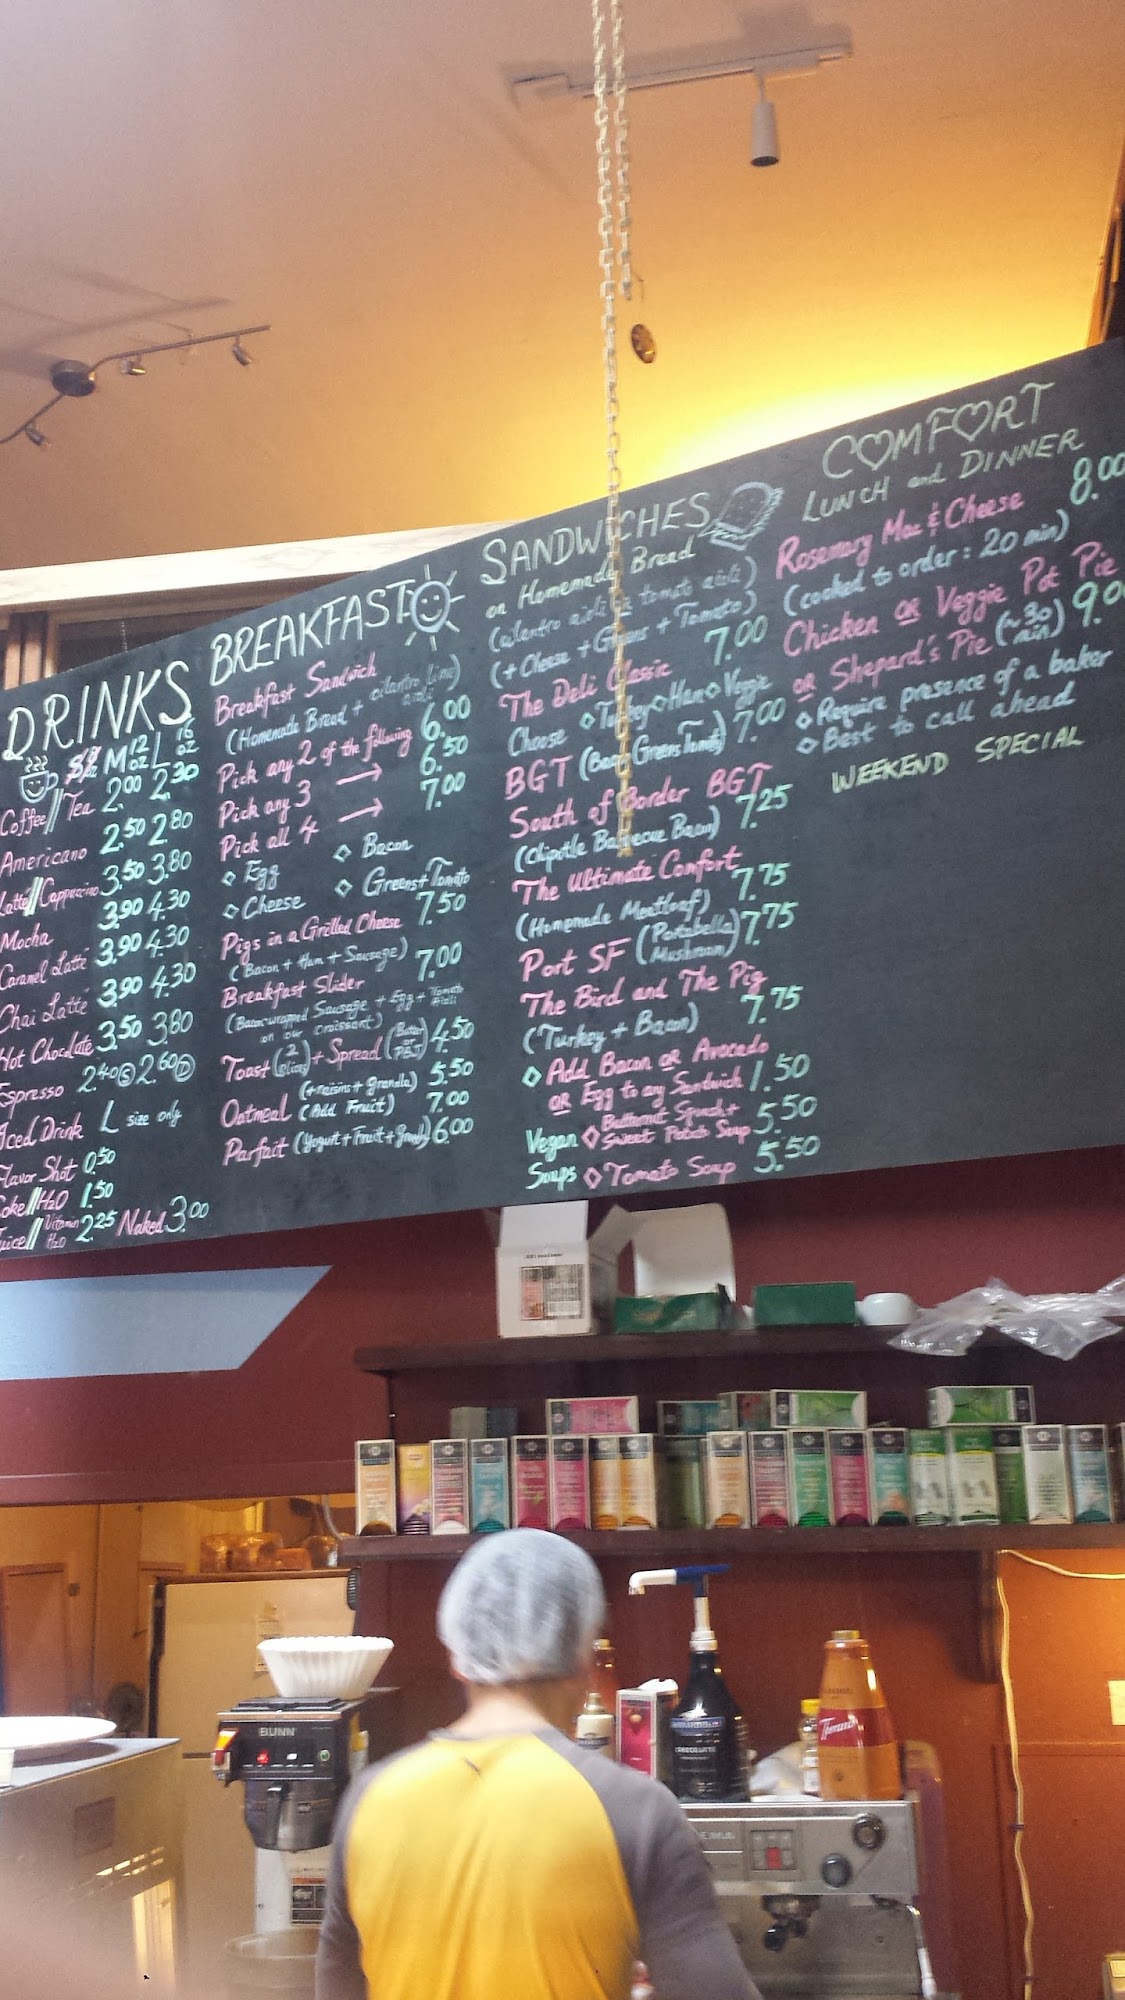 DRINKS
M 12 oz L 16 oz
Coffee//Tea 2.00 2.30
Americano 2.50 2.80
Latté//Cappuccino 3.50 3.80
Mocha 3.90 4.30
Caramel Latté 3.90 4.30
Chai Latté 3.90 4.30
Hot Chocolate 3.50 3.80
Espresso 2.40 S 2.60 D
Iced Drink L size only
Flavor Shot 0.50
Coke//H2O 1.50
Juice//Vitamin H2O 2.25 Naked 3.00
BREAKFAST
Breakfast Sandwich
(Homemade Bread + cilantro lime aioli)
Pick any 2 of the following 6.00
Pick any 3 → 6.50
Pick all 4 → 7.00
◇ Egg ◇ Bacon
◇ Cheese ◇ Greens+Tomato
Pigs in a Grilled Cheese 7.50
(Bacon + Ham + Sausage)
Breakfast Slider 7.00
(Bacon wrapped Sausage + Egg + Tomato Aioli
on our croissant)
Toast (2 slices) + Spread (Butter or PB+J) 4.50
(+raisins + granola) 5.50
Oatmeal (Add Fruit) 7.00
Parfait (Yogurt + Fruit + ) 6.00
SANDWICHES
on Homemade Bread
(cilantro aioli tomato aioli)
(+ Cheese + Greens + Tomato)
The Deli Classic 7.00
Choose ◇Turkey◇Ham◇Veggie
BGT (Bacon Greens Tomato) 7.00
South of Border BGT
(Chipotle Barbecue Bacon) 7.25
The Ultimate Comfort
(Homemade Meatloaf) 7.75
Port SF (Portabella Mushroom) 7.75
The Bird and The Pig
(Turkey + Bacon) 7.75
◇ Add Bacon or Avocado
or Egg to any Sandwich 1.50
Vegan ◇ Butternut Squash +
Sweet Potato Soup 5.50
Soups ◇ Tomato Soup 5.50
COMFORT
LUNCH and DINNER
Rosemary Mac & Cheese 8.00
(cooked to order: 20 min)
Chicken or Veggie Pot Pie
or Shepard's Pie (~30 min) 9.00
◇ Require presence of a baker
◇ Best to call ahead
WEEKEND SPECIAL
BUNN
Torani